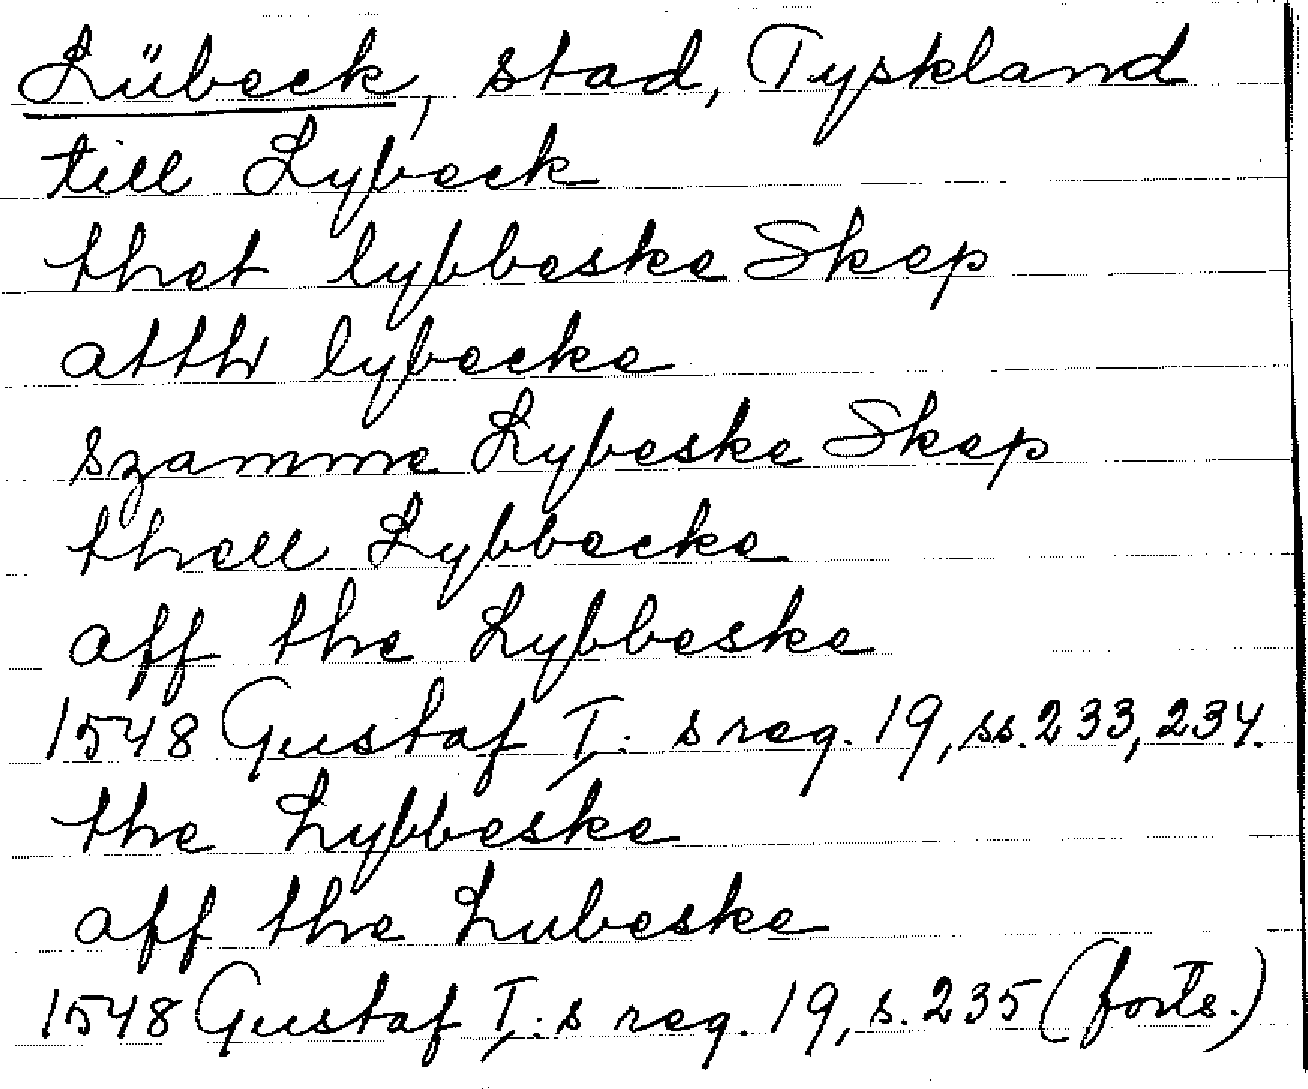 Lübeck, stad, Tyskland
till Lybeck
thet lybbeske Skep
atthr lybecke
szamme Lybeske Skep
thell Lybbecke
aff the Lybbeske
1548 Gustaf I: s reg. 19, ss. 233, 234.
the Lybbeske
aff the Lubeske
1548 Gustaf I: s reg. 19, s. 235 (forts.)